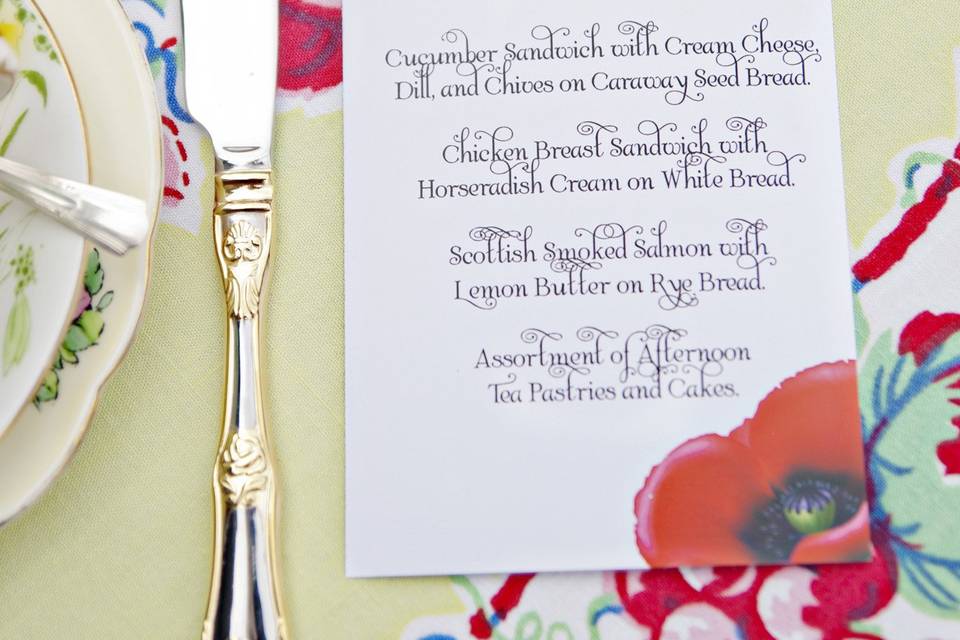 Cucumber Sandwich with Cream Cheese,
Dill, and Chives on Caraway Seed Bread.
Chicken Breast Sandwich with
Horseradish Cream on White Bread.
Scottish Smoked Salmon with
Lemon Butter on Rye Bread.
Assortment of Afternoon
Tea Pastries and Cakes.